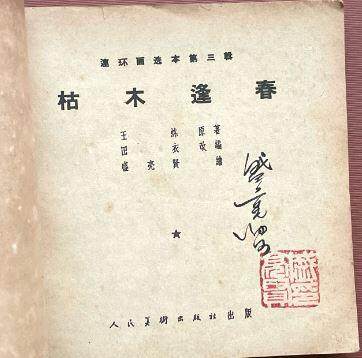 連环画选本第三輯
枯木逢春
王煉 原著
田衣 改編
盛亮賢 繪
盛亮贤
人民美術出版社出版